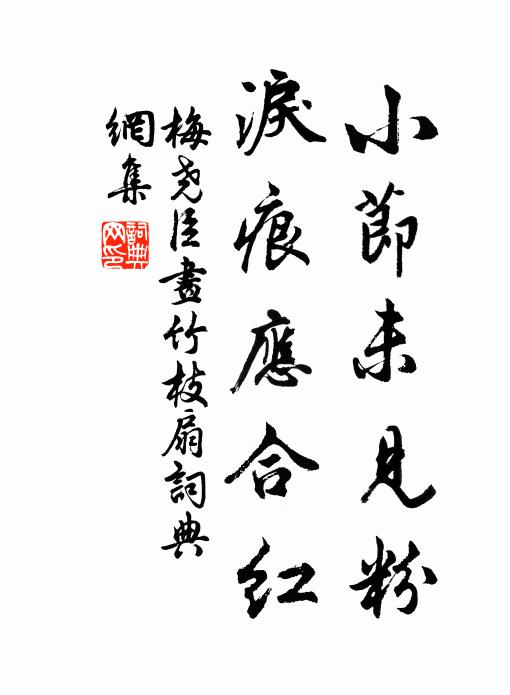 小節未見粉
淚痕應合紅
梅堯臣畫竹枝扇詞典
網集
詞典
网印